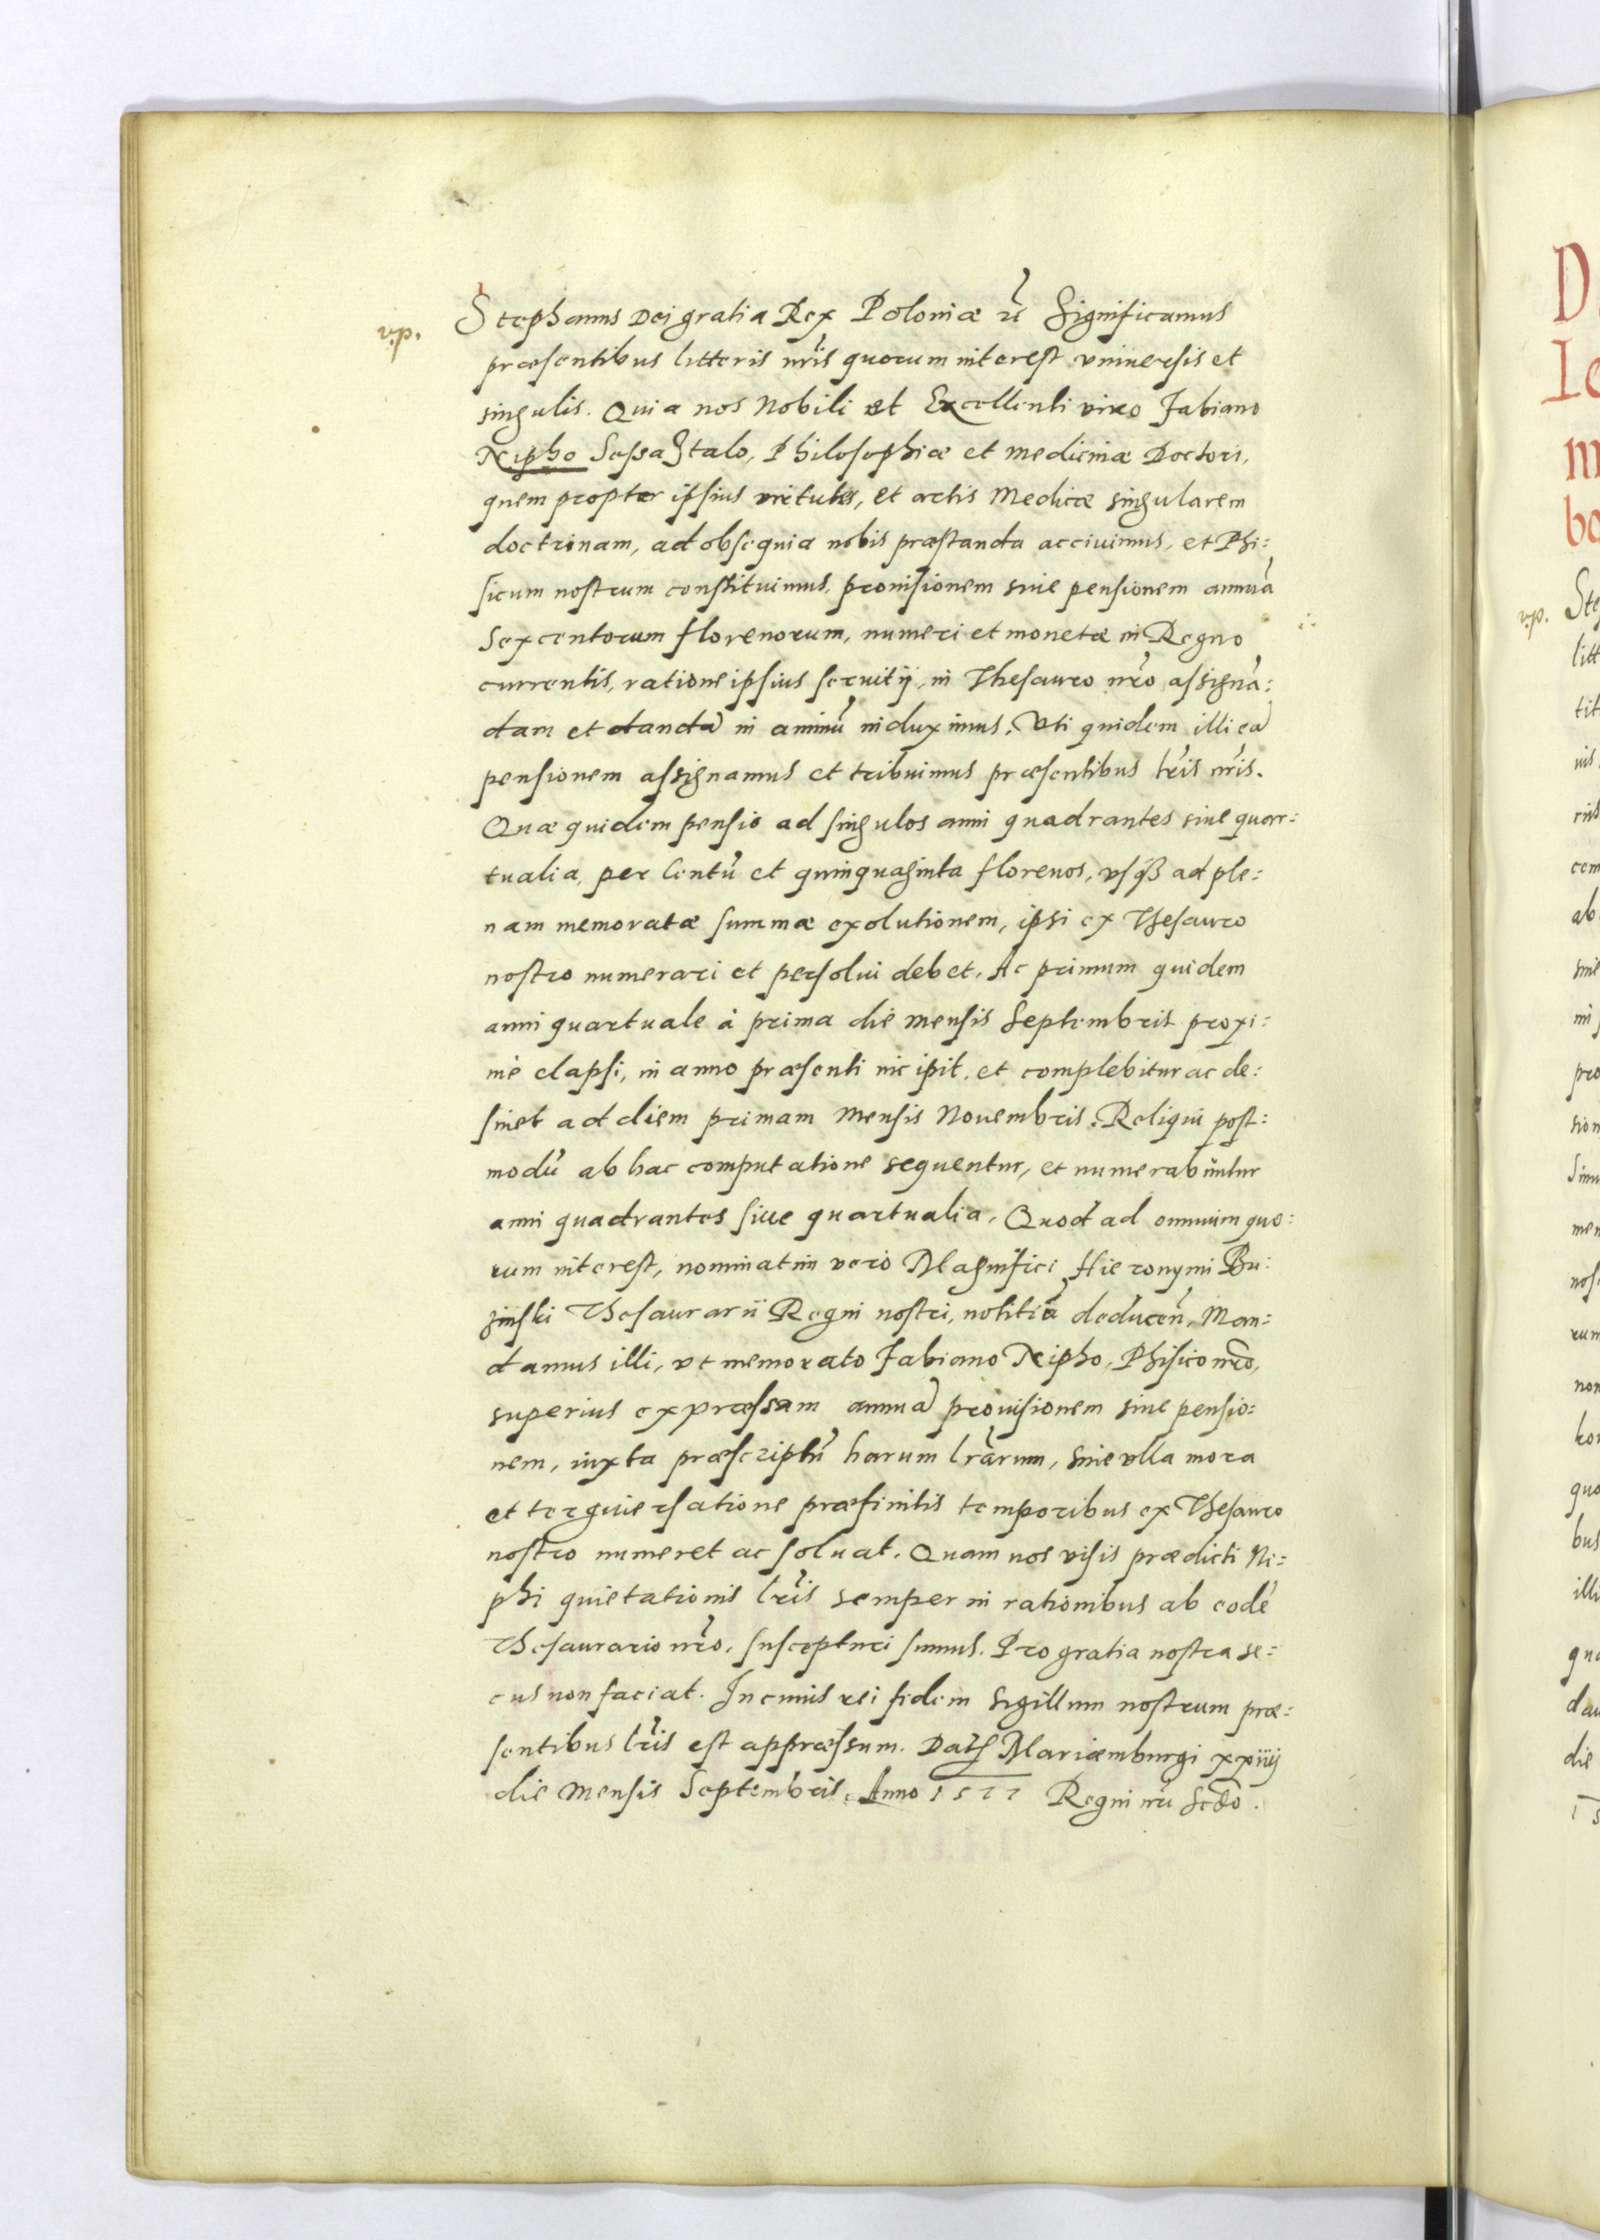 vp.
Stephanus Dei gratia Rex Poloniæ rc̃ Significamus
præsentibus litteris nr̃is quorum interest vniuersis et
singulis. Quia nos Nobili et Excellenti viro Fabiano
Nipho Sessa Italo, Philosophiæ et medicinæ Doctori,
quem propter ipsius virtutes, et artis Medicæ singularem
doctrinam, ad obsequia nobis præstanda acciuimus, et Phi:
sicum nostrum constituimus, prouisionem siue pensionem annuā
Sexcentorum florenorum, numeri et monetæ in Regno
currentis, ratione ipsius seruitij, in Thesauro nr̃o assignā:
dam et dandā in animū induximus. Vti quidem illi eā
pensionem assignamus et tribuimus præsentibus lr̃is nr̃is.
Quæ quidem pensio ad singulos anni quadrantes siue quar:
tualia, per Centū et quinquaginta florenos, vsq̃ ad ple:
nam memoratæ summæ exolutionem, ipsi ex Thesauro
nostro numerari et persolui debet. Ac primum quidem
anni quartuale à prima die mensis Septembris proxi:
mè elapsi, in anno præsenti incipit, et complebitur ac de:
sinet ad diem primam Mensis Nouembris. Reliqui post:
modū ab hac computatione sequentur, et numerabuntur
anni quadrantes siue quartualia. Quod ad omnium quo:
rum interest, nominatim verò Magnifici Hieronymi Bu:
zinski Thesaurarii Regni nostri, notitiā deducen̄, Man:
damus illi, vt memorato Fabiano Nipho, Phisico nr̃o,
superius expræssam annuā prouisionem siue pensio:
nem, iuxta præscriptū harum lr̃arum, sine vlla mora
et terguiersatione præfinitis temporibus ex Thesauro
nostro numeret ac soluat. Quam nos visis prædicti Ni:
phi quietationis lr̃is semper in rationibus ab eodē
Thesaurario nr̃o, suscepturi sumus. Pro gratia nostra se:
cus non faciat. In cuius rei fidem sigillum nostrum præ:
sentibus lr̃is est appræssum. Dat Mariæmburgi xxiiij
die Mensis Septembris, Anno 1577 Regni nr̃i Scdo.
vp.